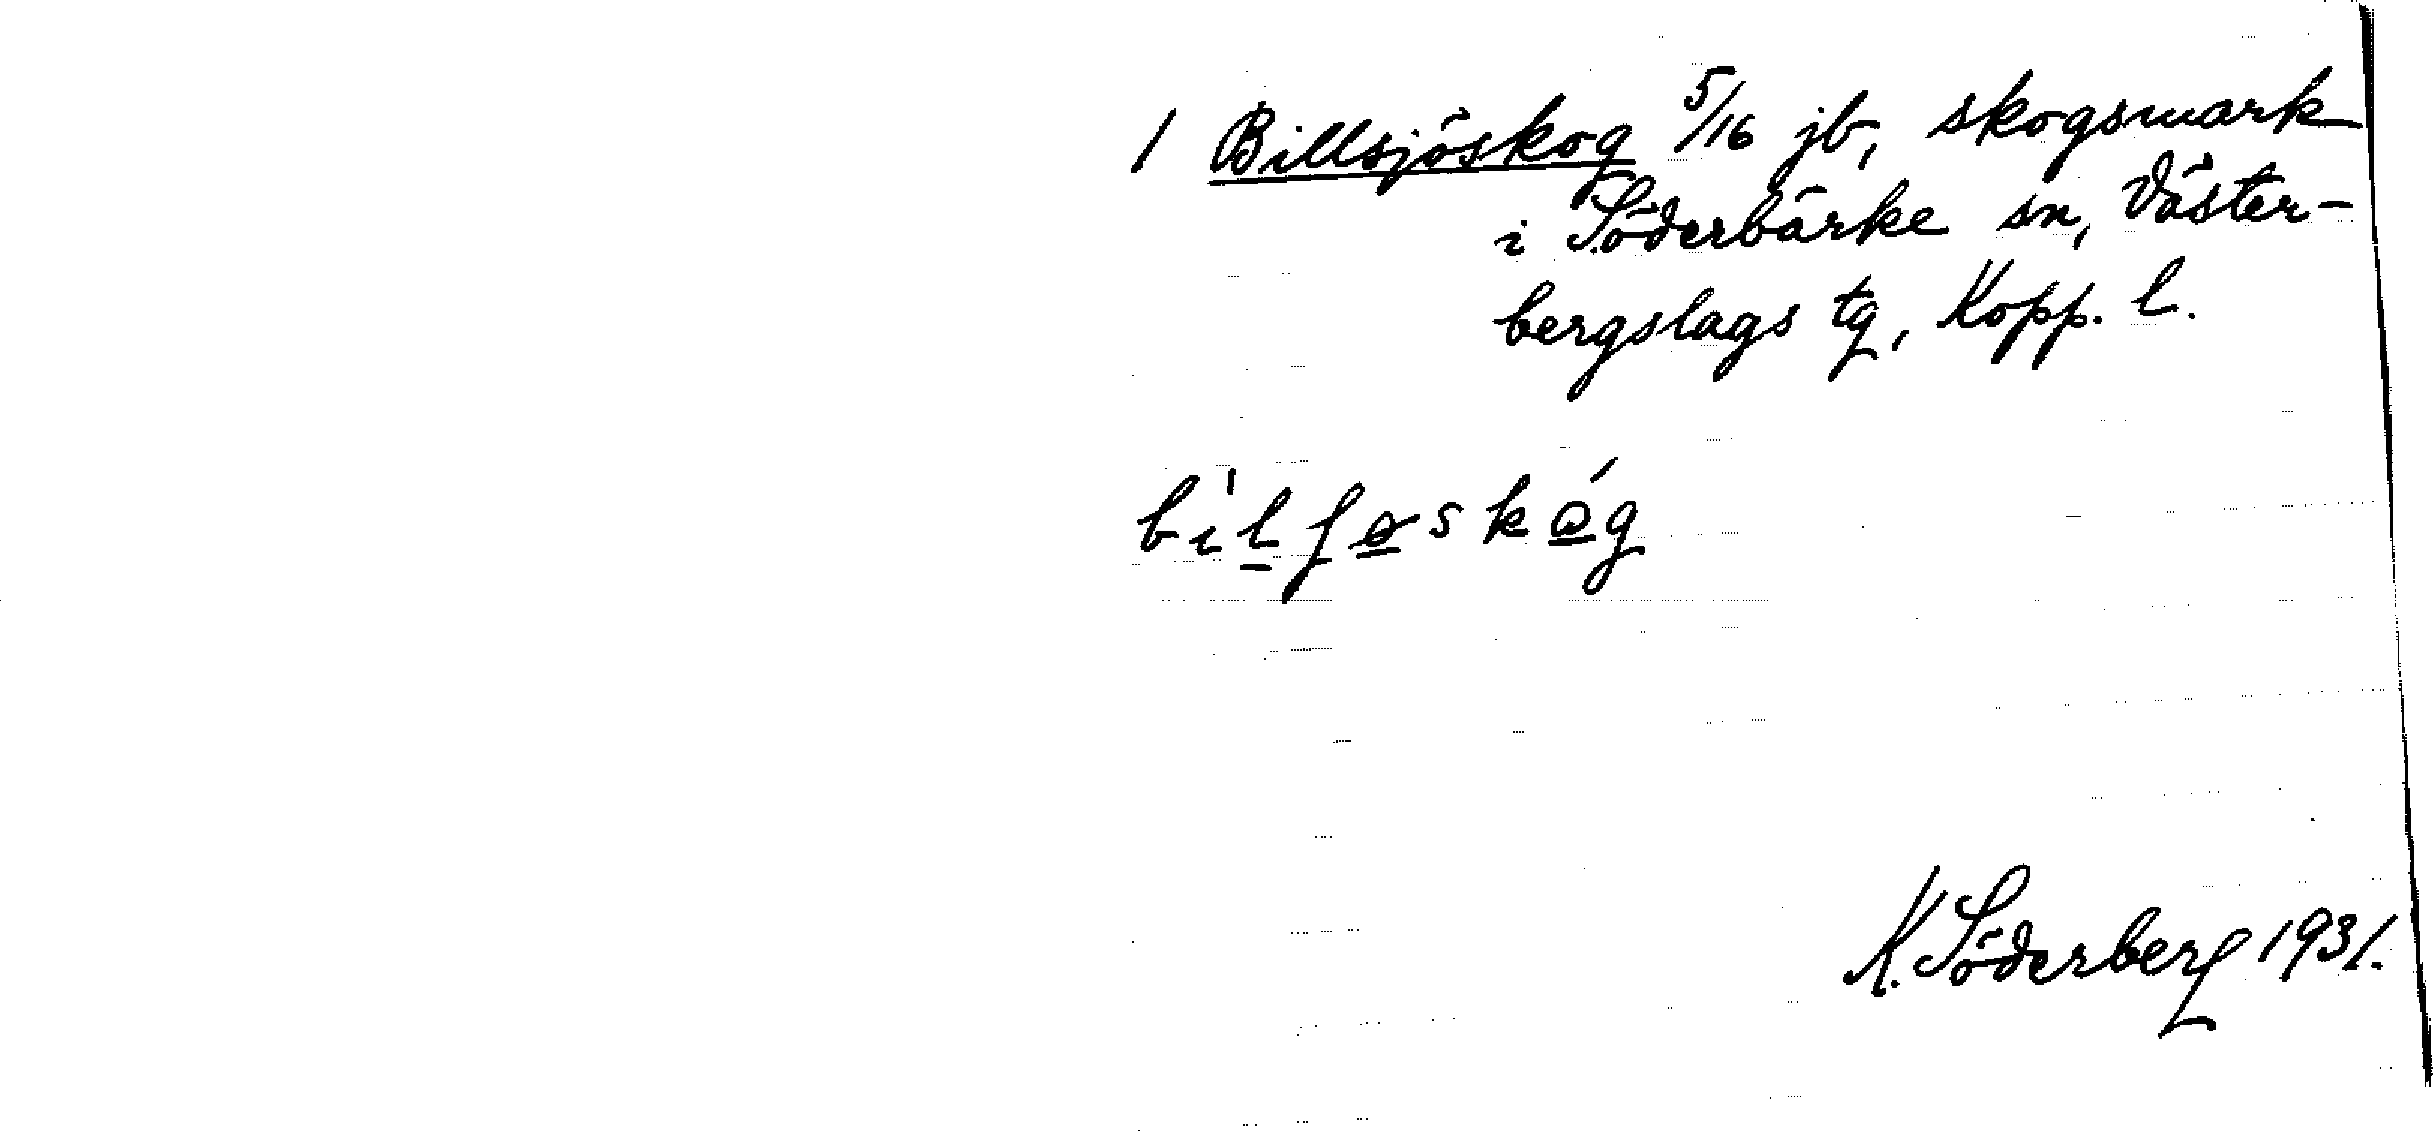 1 Billsjöskog 5/16 jb, skogsmark
i Söderbärke sn, Väster-
bergslags tg, Kopp. l.
K. Söderberg 1931.